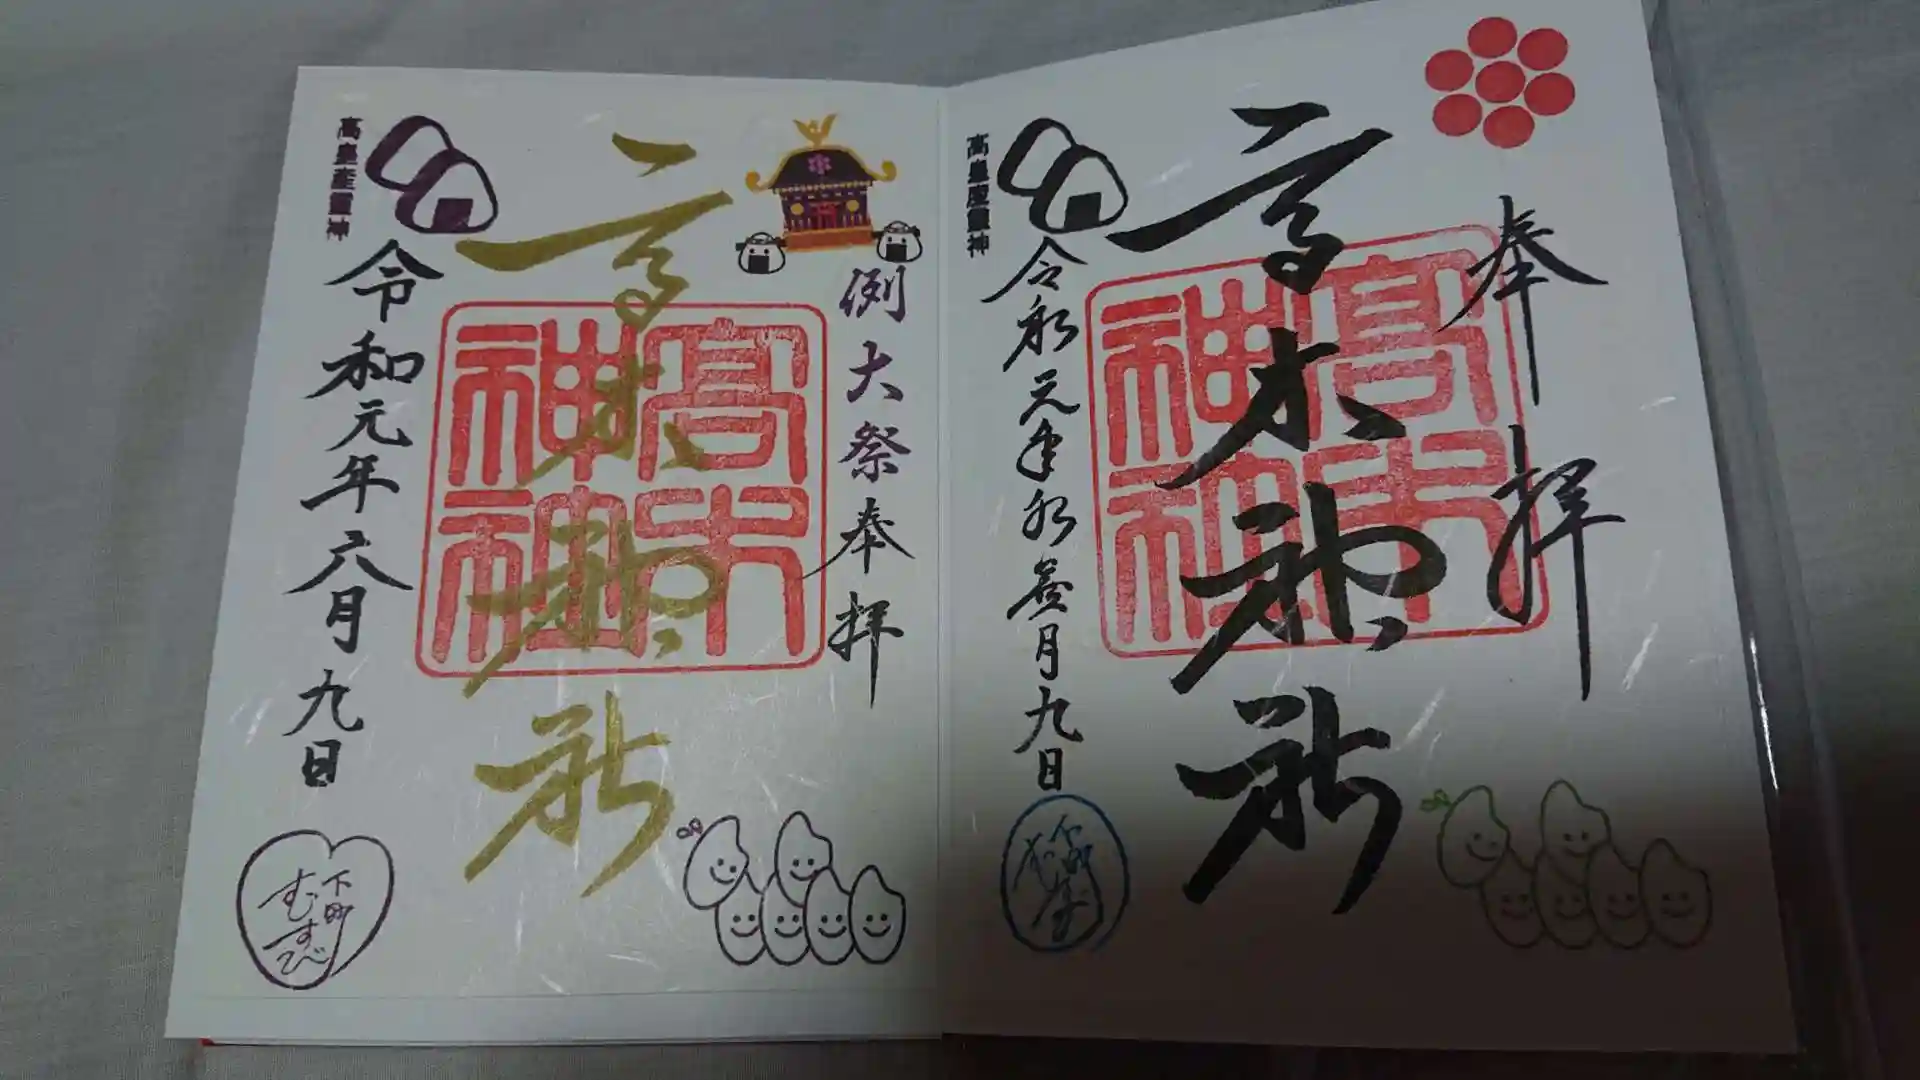 奉拝
高木神社
高木神社
令和元年水無月九日
高皇産靈神
例大祭奉拝
高木神社
高木神社
令和元年六月九日
高皇産靈神
下町
むすび